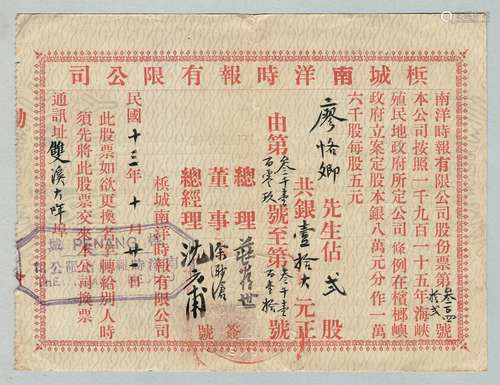 司公限有報時洋南城檳
南洋時報有限公司股份票第
號
本公司按照一千九百一十五年海峽
殖民地政府所定公司條例在檳榔嶼
政府立案定股本銀八萬元分作一萬
六千股每股五元
廖恪卿先生佔貳股
共銀壹拾大元正
由第叁千壹百零玖號至第叁千壹百壹拾號
總理
董事
總經理
簽號
檳城南洋時報有限公司
民國十三年十月廿一日
此股票如欲更換名字轉給別人時
須先將此股票交來本公司換票
通訊址雙溪大哖埠
PENANG
THE